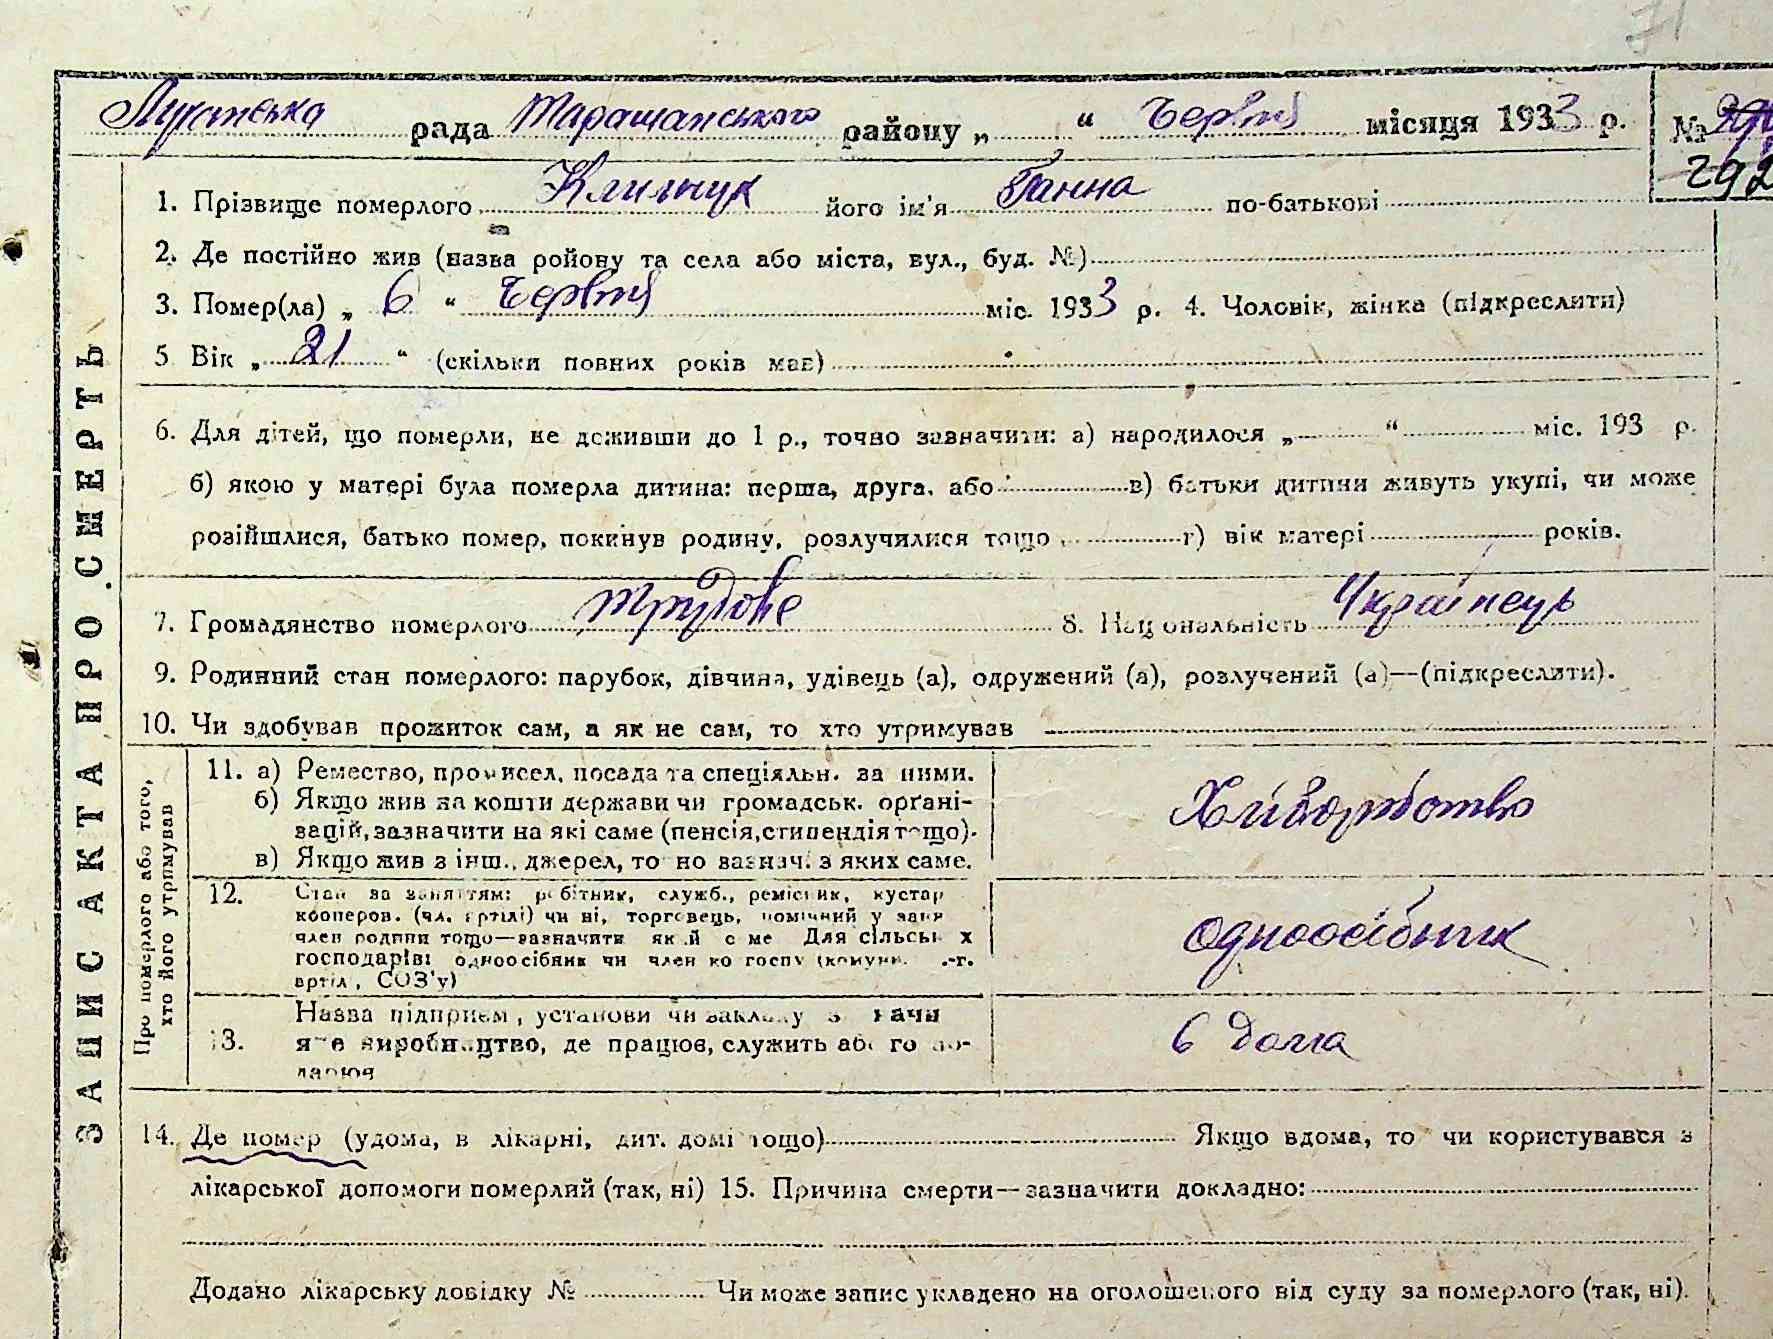 71
Лучанська рада Таращанського району „ “ Червня місяця 1933 р. №
292
1. Прізвище померлого Климчук його ім'я Ганна по-батькові
2. Де постійно жив (назва ройону та села або міста, вул., буд. №)
3. Помер(ла) „ 6 “ Червня міс. 1933 р. 4. Чоловік, жінка (підкреслити)
5 Вік „ 21 “ (скільки повних років має)
6. Для дітей, що померли, не доживши до 1 р., точно зазначити: а) народилося „ “ міс. 193 р.
б) якою у матері була померла дитина: перша, друга, або в) батьки дитини живуть укупі, чи може
розійшлися, батько помер, покинув родину, розлучилися тощо г) вік матері років.
7. Громадянство померлого трудове 8. Національність Українець
9. Родинний стан померлого: парубок, дівчина, удівець (а), одружений (а), розлучений (а)—(підкреслити).
10. Чи здобував прожиток сам, а як не сам, то хто утримував
ЗАПИС АКТА ПРО СМЕРТЬ
Про померлого або того,
хто його утримував
11. а) Ремество, промисел, посада та спеціяльн. за ними.
б) Якщо жив на кошти держави чи громадськ. орґані-
зацій, зазначити на які саме (пенсія, стипендія тощо).
в) Якщо жив з інш., джерел, то но зазнач. з яких саме.
Хліборобство
12. Стан за заняттям: робітник, служб., ремісник, кустар
кооперов. (чл. артілі) чи ні, торговець, помічний у заня
член родини тощо—зазначити який саме Для сільських
господарів: одноосібник чи член ко госпу (комуни, .-г.
артіл , СОЗ'у)
одноосібник
13. Назва підприєм , установи чи закладу
виробництво, де працює, служить або го
б дома
14. Де помер (удома, в лікарні, дит. домі тощо) Якщо вдома, то чи користувався з
лікарської допомоги померлий (так, ні) 15. Причина смерти—зазначити докладно:
Додано лікарську довідку № Чи може запис укладено на оголошеного від суду за померлого (так, ні).